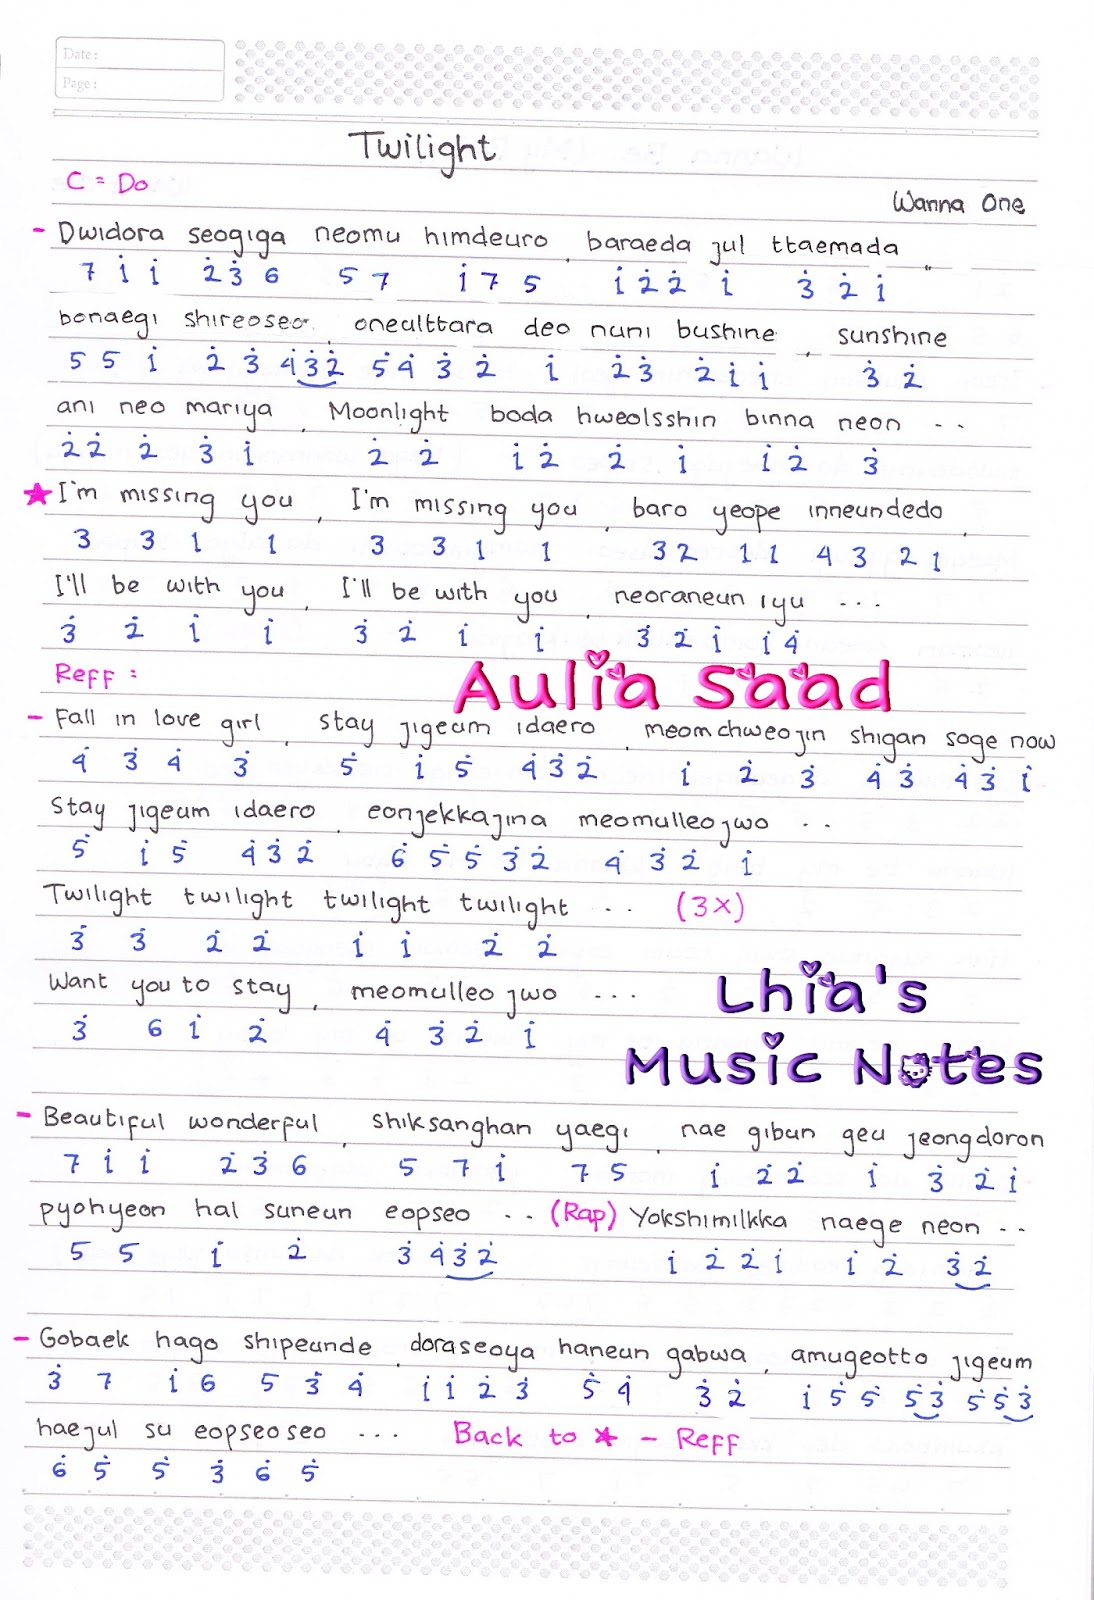 Date :
Page :
Twilight
C = Do
Wanna One
- Dwidora seogiga neomu himdeuro, baraeda jul ttaemada,
7 i̇ i̇ 2̇ 3̇ 6 5 7 i̇ 7 5 i̇ 2̇ 2̇ i̇ 3̇ 2̇ i̇
bonaegi shireoseo, oneulttara deo nuni bushine, sunshine
5 5 i̇ 2̇ 3̇ 4̇ 3̇ 2̇ 5̇ 4̇ 3̇ 2̇ i̇ 2̇ 3̇ 2̇ i̇ i̇ 3̇ 2̇
ani neo mariya, Moonlight boda hweolsshin binna neon ..
2̇ 2̇ 2̇ 3̇ i̇ 2̇ 2̇ i̇ 2̇ 2̇ i̇ i̇ 2̇ 3̇
★ I'm missing you, I'm missing you, baro yeope inneundedo,
3 3 1 1 3 3 1 1 3 2 1 1 4 3 2 1
I'll be with you, I'll be with you, neoraneun iyu ...
3̇ 2̇ i̇ i̇ 3̇ 2̇ i̇ i̇ 3̇ 2̇ i̇ i̇ 4̇
Reff :
Aulia Saad
- Fall in love girl, stay jigeum idaero, meomchweojin shigan soge now
4̇ 3̇ 4̇ 3̇ 5̇ i̇ 5̇ 4̇ 3̇ 2̇ i̇ 2̇ 3̇ 4̇ 3̇ 4̇ 3̇ i̇
Stay jigeum idaero, eonjekkajina meomulleojwo ..
5̇ i̇ 5̇ 4̇ 3̇ 2̇ 6̇ 5̇ 5̇ 3̇ 2̇ 4̇ 3̇ 2̇ i̇
Twilight twilight twilight twilight ... (3x)
3̇ 3̇ 2̇ 2̇ i̇ i̇ 2̇ 2̇
Want you to stay, meomulleojwo ...
3̇ 6 i̇ 2̇ 4̇ 3̇ 2̇ i̇
Lhia's
Music Notes
- Beautiful wonderful, shiksanghan yaegi, nae gibun geu jeongdoron
7 i̇ i̇ 2̇ 3̇ 6 5 7 i̇ 7 5 i̇ 2̇ 2̇ i̇ 3̇ 2̇ i̇
pyohyeon hal suneun eopseo .. (Rap) Yokshimilkka naege neon ..
5 5 i̇ 2̇ 3̇ 4̇ 3̇ 2̇ i̇ 2̇ 2̇ i̇ i̇ 2̇ 3̇ 2̇
- Gobaek hago shipeunde, doraseoya haneun gabwa, amugeotto jigeum
3̇ 7 i̇ 6 5 3̇ 4̇ i̇ i̇ 2̇ 3̇ 5̇ 4̇ 3̇ 2̇ i̇ 5̇ 5̇ 5̇ 3̇ 5̇ 5̇ 3̇
haejul su eopseoseo ... Back to ★ - Reff
6̇ 5̇ 5̇ 3̇ 6̇ 5̇